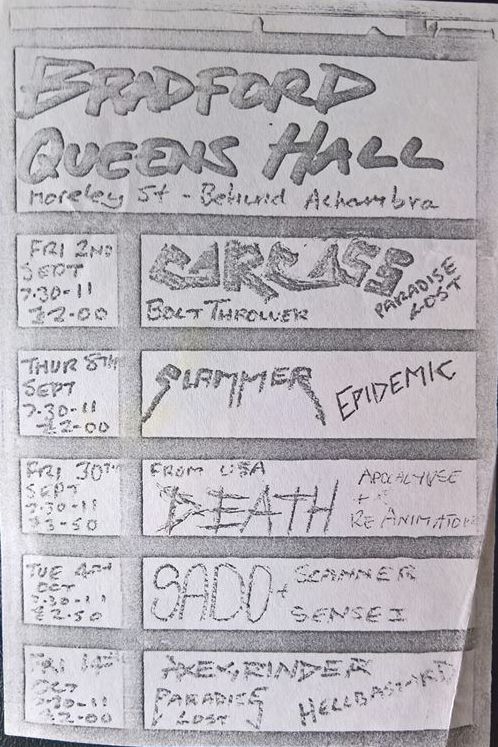 BRADFORD
QUEENS HALL
Moreley St - Behind Alhambra
FRI 2ND
SEPT
7.30-11
£2-00
CARCASS
BOLT THROWER
PARADISE
LOST
THUR 8TH
SEPT
7.30-11
£2-00
SLAMMER
EPIDEMIC
FRI 30TH
SEPT
7.30-11
£3-50
FROM USA
DEATH
APOCALYPSE
+
RE ANIMATOR
TUE 4TH
OCT
7.30-11
£2-50
SADO +
SCANNER
SENSEI
FRI 14TH
OCT
7.30-11
£2-00
AXEGRINDER
PARADISE
LOST
HELLBASTARD